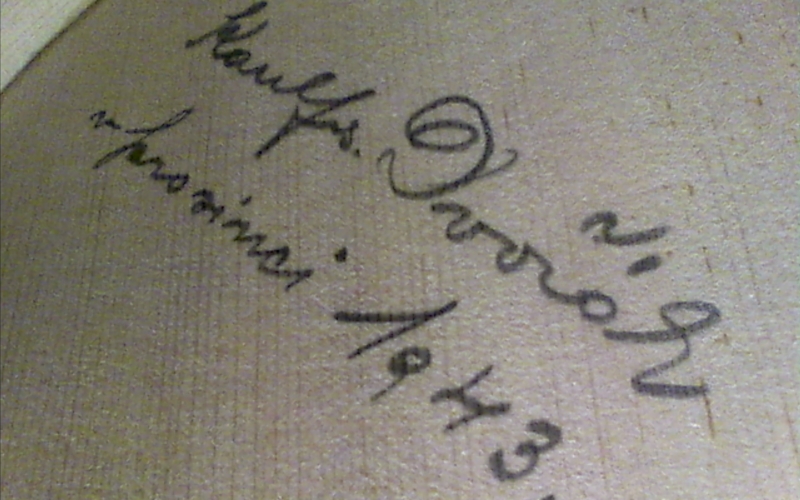 Kaulfus. Dvořák
v prosinci 1943.